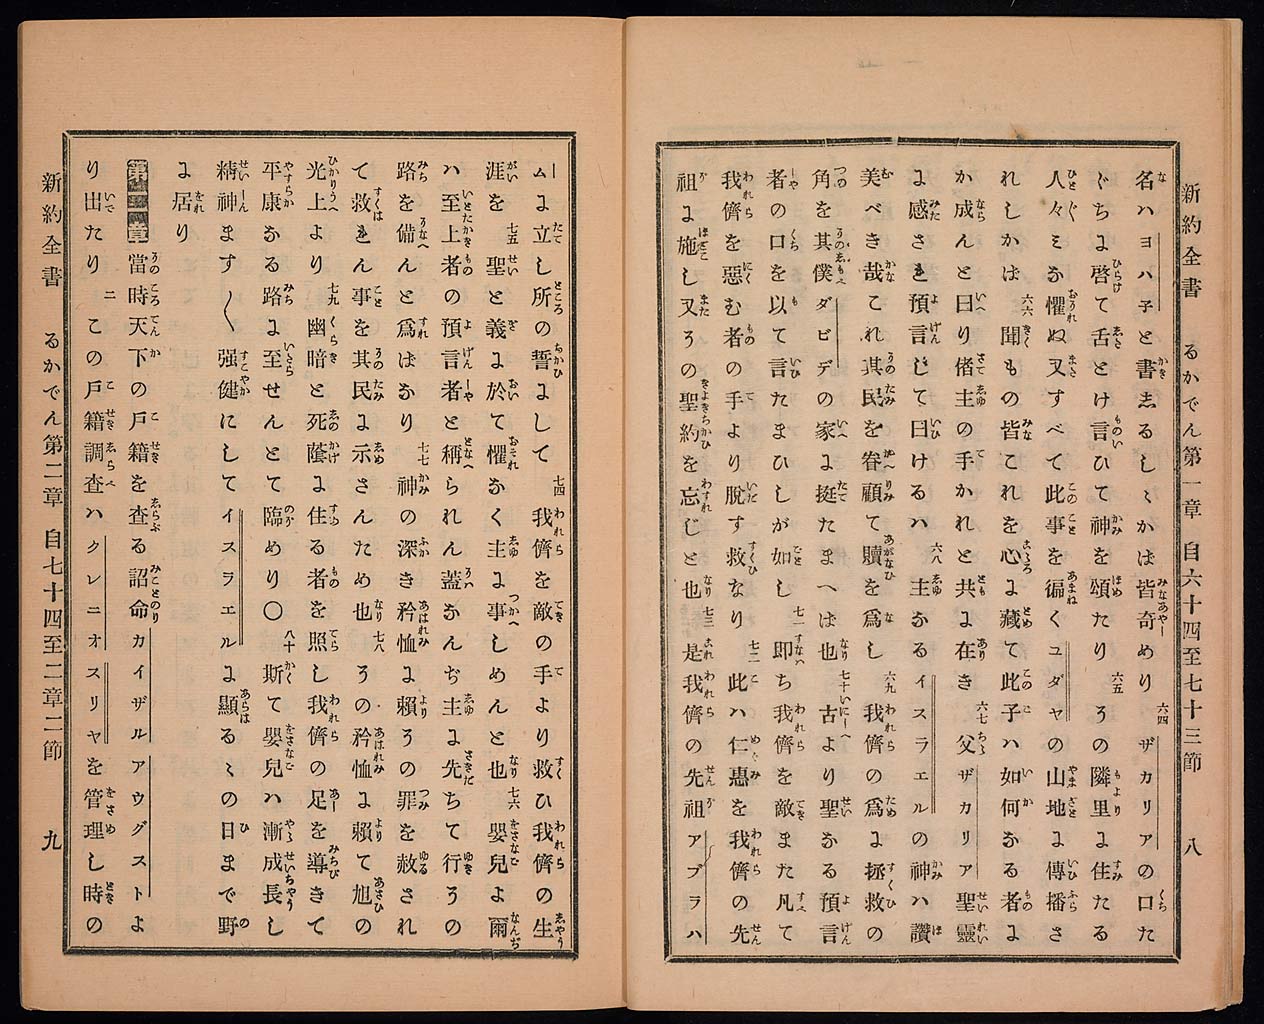 新約全書　るかでん第一章　自六十四至七十三節　八
名ハヨハ子と書しるしゝかは皆奇めり 六四 ザカリアの口た
ぐちよ啓て舌とけ言ひて神を頌たり 六五 その隣里よ住たる
人々ミな懼ぬ又すべて此事を徧くユダヤの山地よ傳播さ
れしかは 六六 聞もの皆これを心よ藏て此子ハ如何なる者よ
か成んと曰り偖主の手かれと共よ在き 六七 父ザカリア聖靈
よ感され預言じて曰けるハ 六八 主なるイスラエルの神ハ讚
美べき哉これ其民を眷顧て贖を爲し 六九 我儕の爲よ拯救の
角を其僕ダビデの家よ挺たまへは也 七十 古より聖なる預言
者の口を以て言たまひしが如し 七一 即ち我儕を敵また凡て
我儕を惡む者の手より脱す救なり 七二 此ハ仁惠を我儕の先
祖よ施し又その聖約を忘じと也 七三 是我儕の先祖アブラハ
ムよ立し所の誓よして 七四 我儕を敵の手より救ひ我儕の生
涯を 七五 聖と義よ於て懼なく主よ事しめんと也 七六 嬰兒よ爾
ハ至上者の預言者と稱られん蓋なんぢ主よ先ちて行その
路を備んと爲ばなり 七七 神の深き矜恤よ賴その罪を赦され
て救れん事を其民よ示さんため也 七八 その矜恤よ賴て旭の
光上より 七九 幽暗と死蔭よ住る者を照し我儕の足を導きて
平康なる路よ至せんとて臨めり〇 八十 斯て嬰兒ハ漸成長し
精神ます〳〵强健にしてイスラエルよ顯るゝの日まで野
よ居り
第二章 當時天下の戸籍を査る詔命カイザルアウグストよ
り出たり 二 この戸籍調査ハクレニオスリヤを管理し時の
新約全書　るかでん第二章　自七十四至二章二節　九